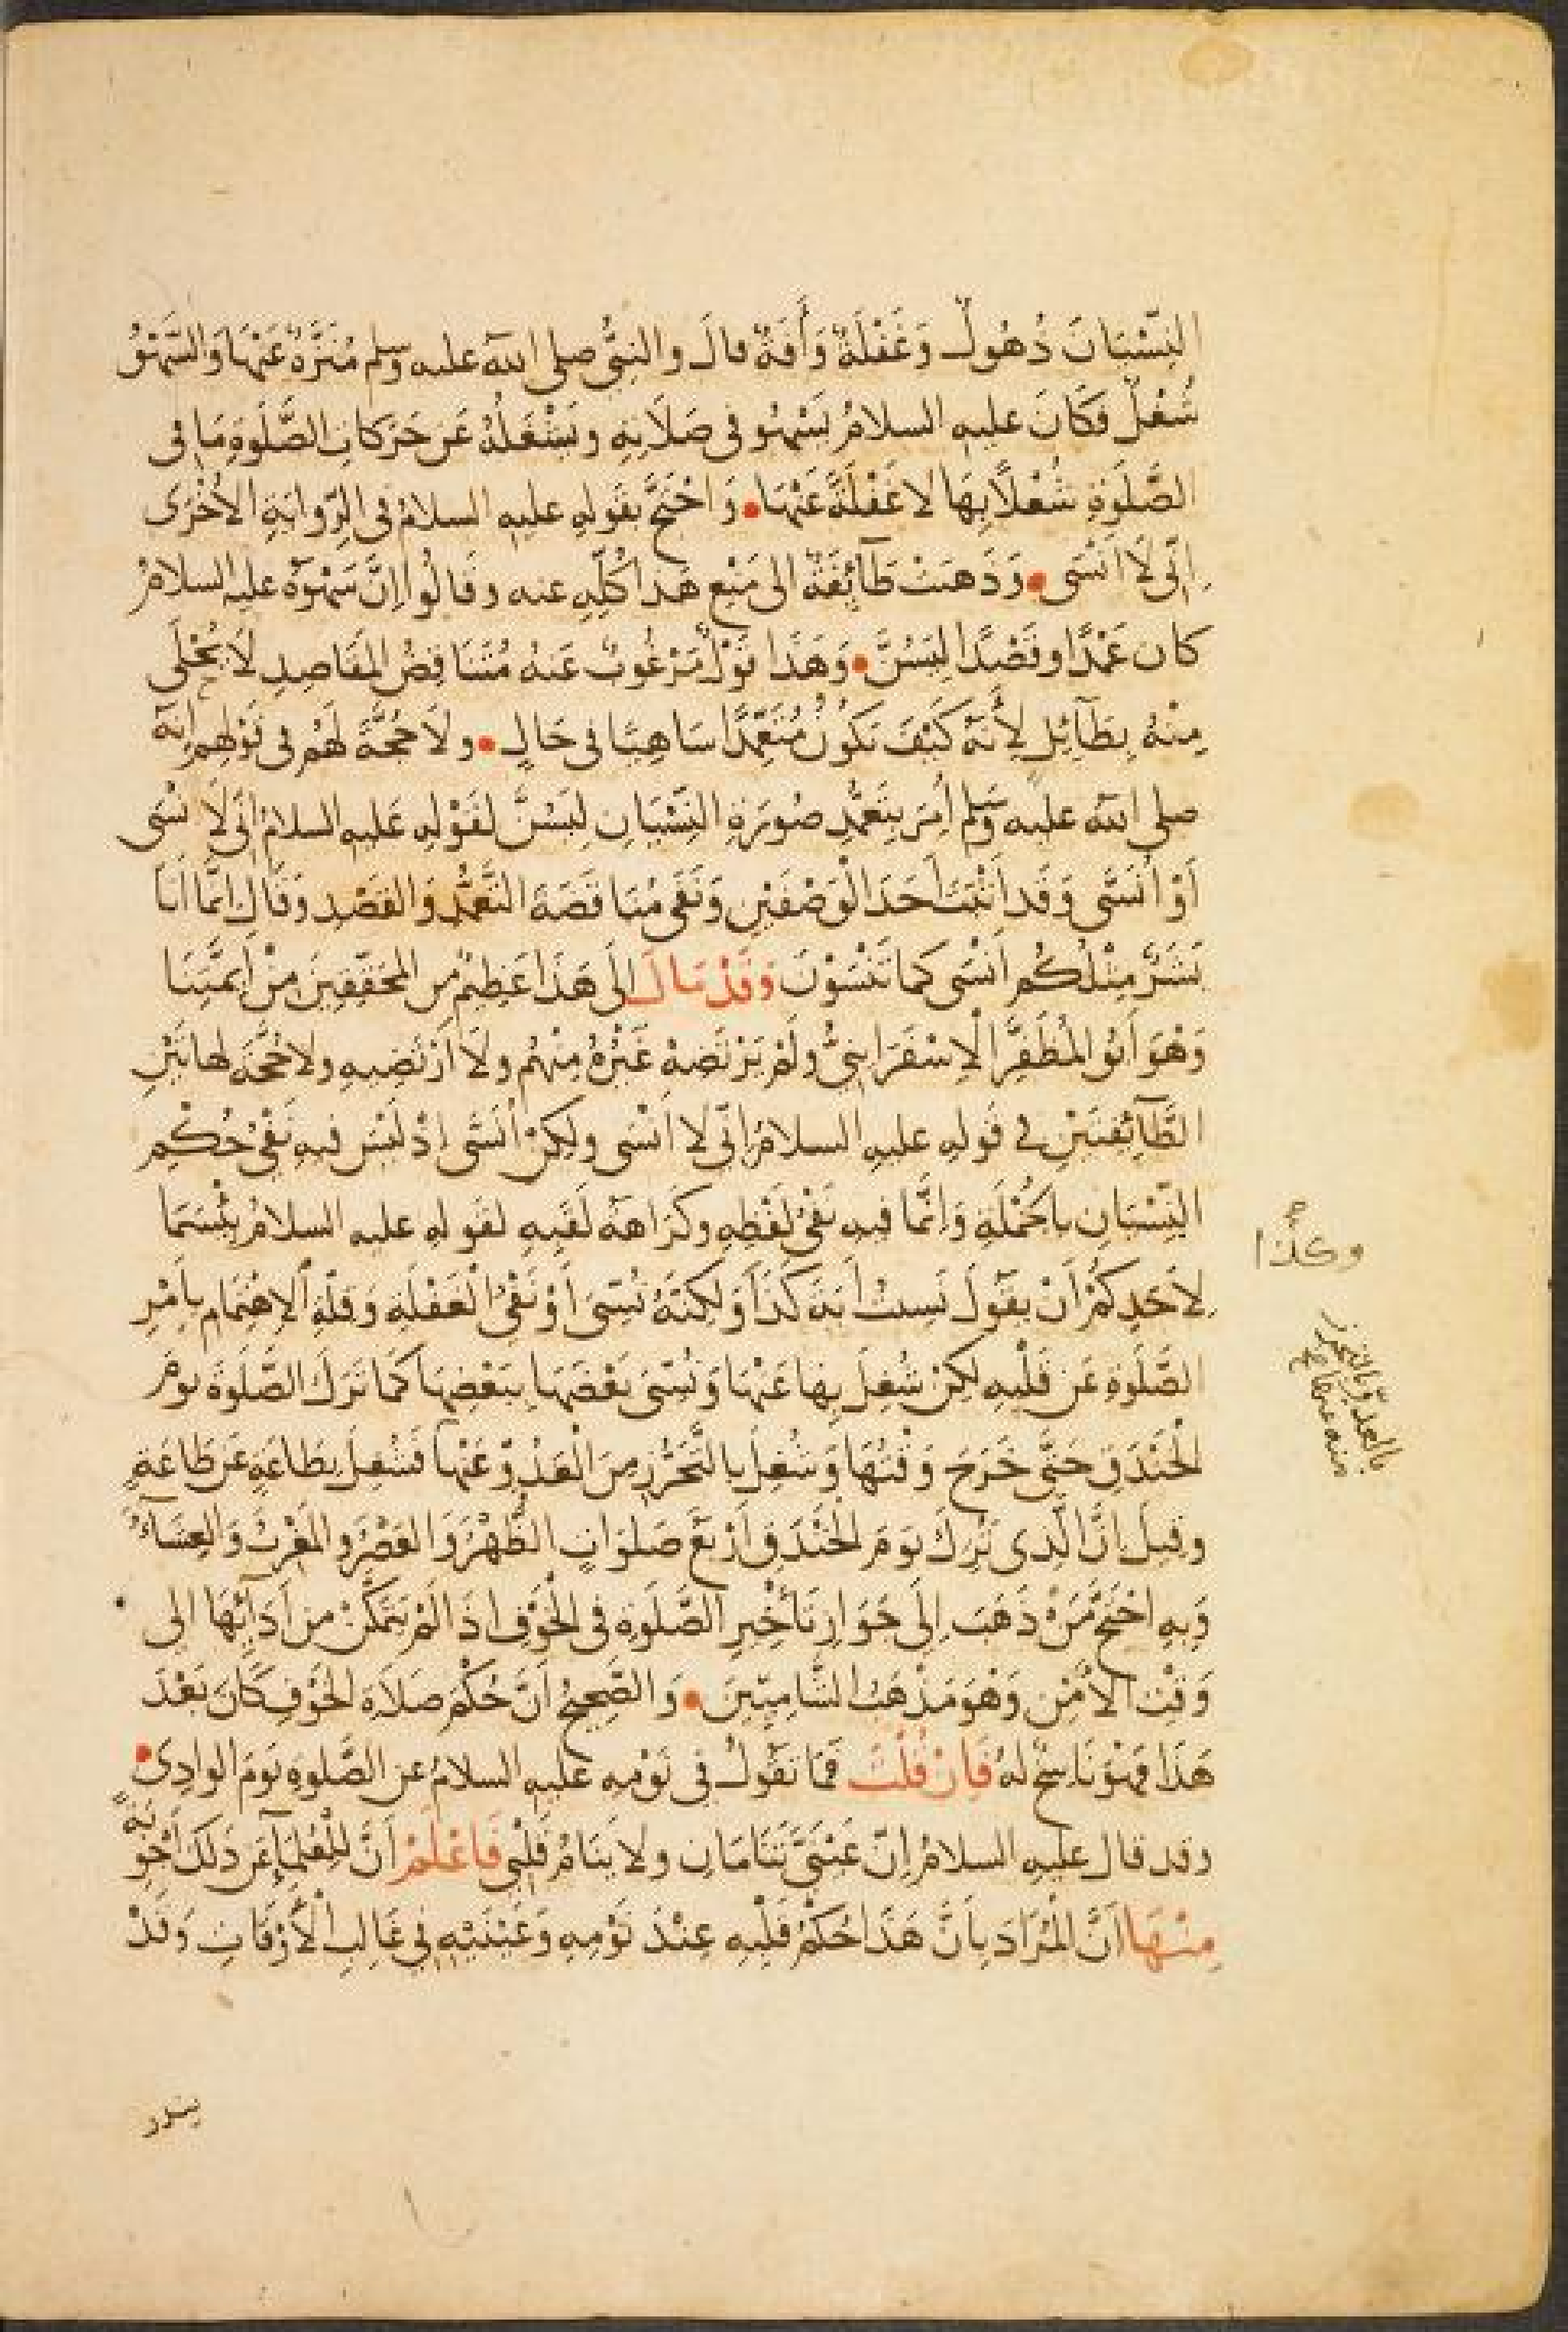 النِّسْيَانَ ذُهُولٌ وَغَفْلَةٌ وَأَفَةٌ قالَ والنبىُّ صلى الله عليه وسلم مُنَزَّهٌ عَنْهَا وَالسَّهْوُ
شُغْلٌ فَكَانَ عليه السلامُ يَسْهُو فى صَلَاتِهِ ويَشْغَلُهُ عَن حَرَكاتِ الصَّلَوةِ مَا فى
الصَّلَوةِ شُغْلًا بِهَا لا غَفْلَةً عَنْهَا وَاحْتَجَّ بقولِهِ عليه السلامُ فى الرِّوايَةِ الأُخْرَى
اِنّى لَا اَنْسَى وَذَهبَتْ طَآئِفَةٌ الى مَنْعِ هَذا كُلِّهِ عنه وقالُوا اِنَّ سَهْوَهُ عليه السلامُ
كان عَمْدًا وقَصْدًا لِيَسُنَّ وَهَذَا قَوْلٌ مَرْغُوبٌ عَنهُ مُتَنَاقِضُ المَقَاصِدِ لَا يُحْلَى
مِنْهُ بِطَآئِلٍ لِأَنَّهُ كَيْفَ يَكُونُ مُتَعَمِّدًا سَاهِيًا فى حَالٍ ولَا حُجَّةَ لَهُم فى قَوْلهم اِنّه
صلى الله عليه وسلم اُمِرَ بِتَعَمُّدِ صُورَةِ النِّسْيَانِ لِيَسُنَّ لقَوْلِهِ عَليهِ السلامُ اِنّى لَا نْسَى
اَوْ اُنَسَّى وَقَد اَثْبَتَ اَحَدَ الْوَصْفَيْنِ وَنَفَى مُنَاقَضَةَ التَّعَمُّدِ وَالقَصْدِ وَقَالَ اِنَّما اَنَا
بَشَرٌ مِثْلُكُم اَنْسَى كما تَنْسَوْنَ وَقَدْ مَالَ اِلَى هَذَا عَظِيمٌ مِن المُحَقّقِينَ مِنْ اَئمَّتِنَا
وَهْوَ اَبُو المُظَفَّرِ الْاِسْفَرَاينِىُّ ولَمْ يَرْتَضِهْ غَيْرُهُ مِنْهُم ولَا اَرْتَضِيهِ ولا حُجَّةَ لهاتَيْنِ
الطَّآئِفَتَيْنِ فى قَولِهِ عليهِ السلامُ اِنّى لا اَنْسَى ولَكِنْ اُنَسَّى اِذْ لَيْسَ فيهِ نَفْىُ حُكْمِ
النِّسْيَانِ بالجُمْلَةِ وَاِنَّما فيهِ نَفْىُ لَفْظِهِ وكَرَاهَةُ لَقَبِهِ لقَولِهِ عليه السلامُ بِئْسَمَا
لِاَحَدِكُمْ اَنْ يَقُولَ نَسِيتُ اَيَةَ كَذَا وَلَكِنَّهُ نُسِّىَ اَوْ نَفْىُ الْغَفْلَةِ وَقِلَّةِ الْاِهْتِمَامِ بِاَمْرِ
الصَّلَوةِ عَن قَلْبِهِ لَكِنْ شُغِلَ بِها عَنْهَا وَنُسِّىَ بَعْضَهَا بِبَعْضِهَا كَمَا تَرَكَ الصَّلَوةَ يومَ
الْخَنْدَقِ حَتَّى خَرَجَ وَقْتُهَا وَشُغِلَ بالتَّحَرُّزِ مِنَ الْعَدُوِّ عَنْهَا فَشُغِلَ بِطَاعَةٍ عَن طَاعَةٍ
وقِيلَ اِنَّ الَّذِى تُرِكَ يَومَ الخَنْدَقِ اَرْبَعُ صَلَوَاتٍ الظُّهْرُ وَالعَصْرُ والمَغْرِبُ وَالعِشَآءُ
وَبِهِ احْتَجَّ مَنْ ذَهَبَ اِلَى جَوَازِ تَأخِيرِ الصَّلَوةِ فى الخَوْفِ اذَا لَمْ يَتَمَكَّنْ مِن اَدَآئِهَا الى
وَقْتِ الاَمْنِ وَهْوَ مَذْهَبُ الشَّامِيِّينَ وَالصَّحِيحُ اَنَّ حُكْمَ صَلَاةِ الخَوْفِ كَانَ بَعْدَ
هَذَا فَهْوَ نَاسِخٌ لهُ فَاِنْ قُلْتَ فَمَا تَقُولُ فى نَوْمِهِ عليه السلامُ عن الصَّلوةِ يَومَ الوادِى
وقد قال عليهِ السلامُ اِنّ عَيْنَىَّ تَنَامَانِ ولا يَنَامُ قَلْبِى فَاعْلَمْ اَنَّ لِلْعُلَمَآءِ عَن ذَلكَ اَجْوِبَةً
مِنْهَا اَنَّ المُرَادَ بِاَنَّ هَذَا حُكْمُ قَلْبِهِ عِنْدَ نَوْمِهِ وَعَيْنَيْهِ فِى غَالِبِ الْاَوْقَاتِ وَقَدْ
وكذا
بالعدوّ بالتحرز
منه عنها
يندر